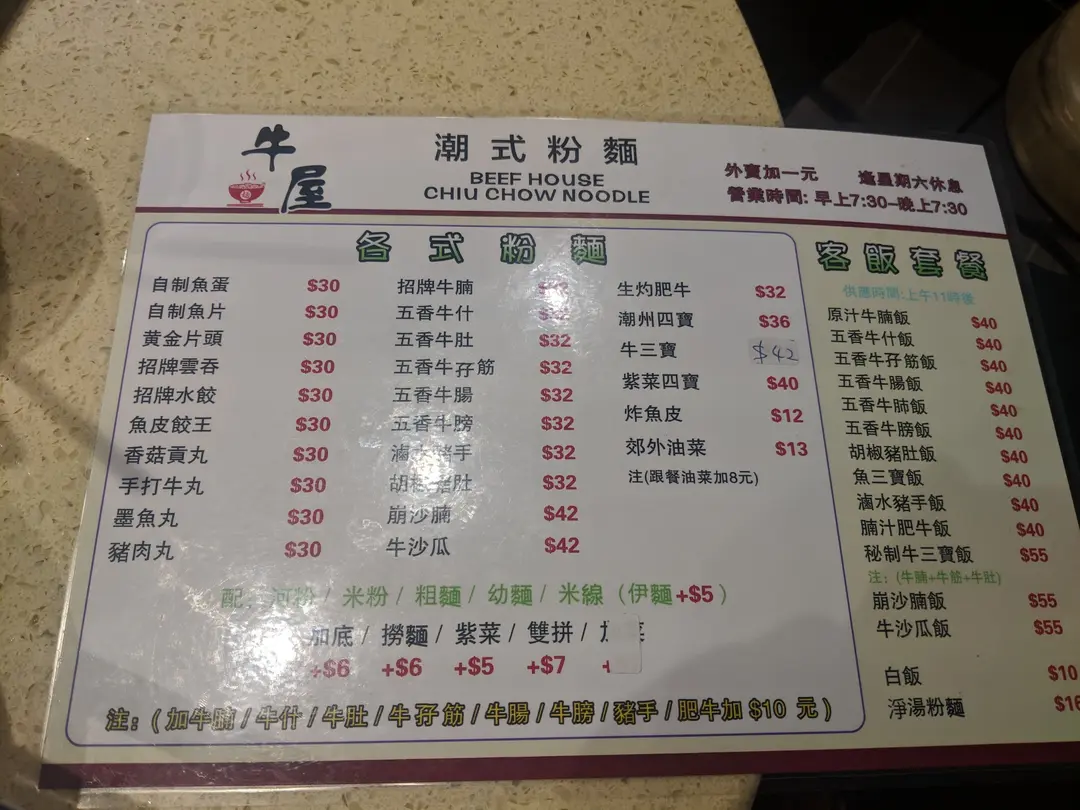 牛屋
潮式粉麵
BEEF HOUSE
CHIU CHOW NOODLE
外賣加一元 逢星期六休息
營業時間: 早上7:30-晚上7:30
各式粉麵
自制魚蛋 $30
自制魚片 $30
黄金片頭 $30
招牌雲吞 $30
招牌水餃 $30
魚皮餃王 $30
香菇貢丸 $30
手打牛丸 $30
墨魚丸 $30
豬肉丸 $30
招牌牛腩
五香牛什
五香牛肚 $32
五香牛孖筋 $32
五香牛腸 $32
五香牛膀 $32
滷水豬手 $32
胡椒豬肚 $32
崩沙腩 $42
牛沙瓜 $42
生灼肥牛 $32
潮州四寶 $36
牛三寶 $42
紫菜四寶 $40
炸魚皮 $12
郊外油菜 $13
注(跟餐油菜加8元)
配: 河粉 / 米粉 / 粗麵 / 幼麵 / 米線 (伊麵+$5)
加底 / 撈麵 / 紫菜 / 雙拼 /
+$6 +$6 +$5 +$7
注: (加牛腩 / 牛什 / 牛肚 / 牛孖筋 / 牛腸 / 牛膀 / 豬手 / 肥牛加 $10 元)
客飯套餐
供應時間:上午11時後
原汁牛腩飯 $40
五香牛什飯 $40
五香牛孖筋飯 $40
五香牛腸飯 $40
五香牛肺飯 $40
五香牛膀飯 $40
胡椒豬肚飯 $40
魚三寶飯 $40
滷水豬手飯 $40
腩汁肥牛飯 $40
秘制牛三寶飯 $55
注: (牛腩+牛筋+牛肚)
崩沙腩飯 $55
牛沙瓜飯 $55
白飯 $10
淨湯粉麵 $16